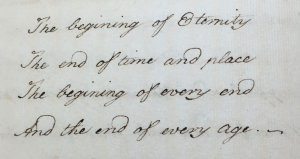 The begining of Eternity
The end of time and place
The begining of every end
And the end of every age.